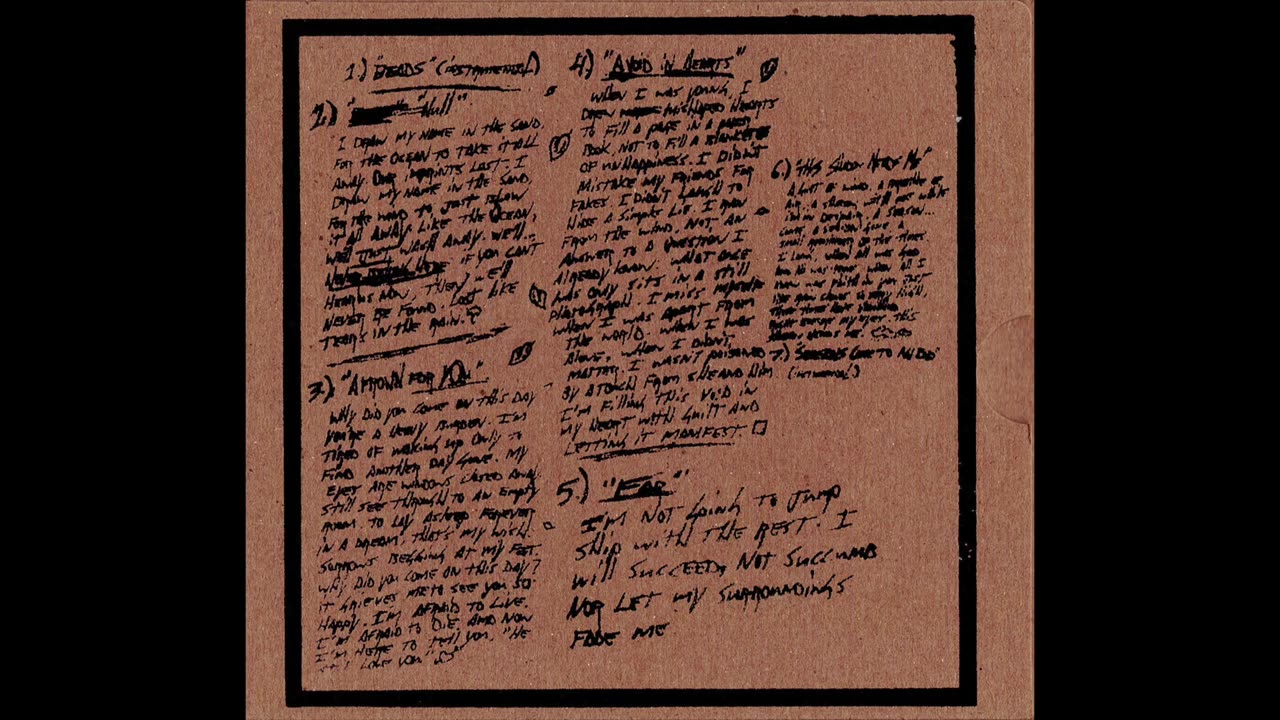 1.) "BEADS" (INSTRUMENTAL)
2.) "Null"
I DRAW MY NAME IN THE SAND.
FOR THE OCEAN TO TAKE IT ALL
AWAY. OUR IMPRINTS LOST. I
DRAW MY NAME IN THE SAND
FOR THE WIND TO JUST BLOW
IT ALL AWAY. LIKE THE OCEAN,
WELL JUST WASH AWAY. WE'LL..
IF YOU CAN'T
HEAR US NOW, THEN WE'LL
NEVER BE FOUND. LOST LIKE
TEARS IN THE RAIN.
3.) "A FROWN FOR YOU"
WHY DID YOU COME ON THIS DAY
YOU'RE A BURDEN. I'M
TIRED OF WAKING UP ONLY TO
FIND ANOTHER DAY GONE. MY
EYES ARE WINDOWS CLOSED AWAY.
STILL SEE THROUGH TO AN EMPTY
ROOM. TO LAY ASLEEP FOREVER
IN A DREAM, THAT'S MY WISH.
SORROWS BEGGING AT MY FEET.
WHY DID YOU COME ON THIS DAY?
IT GRIEVES ME TO SEE YOU SO
HAPPY. I'M AFRAID TO LIVE.
I'M AFRAID TO DIE. AND NOW
I'M HERE TO TELL YOU. "HE
I LOVE YOU"
4.) "AVOID IN HEARTS"
WHEN I WAS YOUNG, I
DREW MISHAPED HEARTS
TO FILL A PAGE IN A
BOOK. NOT TO FILL A
OF UNHAPPINESS. I DIDN'T
MISTAKE MY FRIENDS FOR
FAKES. I DIDN'T LAUGH TO
HIDE A SIMPLE LIE. I RAN
FROM THE WIND. NOT, AN
ANSWER TO A QUESTION I
ALREADY KNOW. WHAT ONCE
WAS ONLY SITS IN A STILL
PHOTOGRAPH. I MISS
WHEN I WAS APART FROM
THE WORLD. WHEN I WAS
ALONE. WHEN I DIDN'T
MATTER. I WASN'T POISONED
BY A TOUCH FROM SHE AND HIM
I'M FILLING THIS VOID IN
MY HEART WITH GUILT AND
LETTING IT MANIFEST.
5.) "FOR"
I'M NOT GOING TO JUMP
SHIP WITH THE REST. I
WILL SUCCEED, NOT SUCCUMB
NOR LET MY SURROUNDINGS
FADE ME
6.) "THIS
A GUST OF WIND. A BREATHE OF
AIR. A
I'M IN DESPAIR. A SEASON...
A SEASON GONE. A
SMALL REMINDER OF THE TIMES.
I WHEN ALL WAS
WAS WHEN ALL I
THIS
ME.
7.) "SEASONS COME TO AN END"
(INSTRUMENTAL)